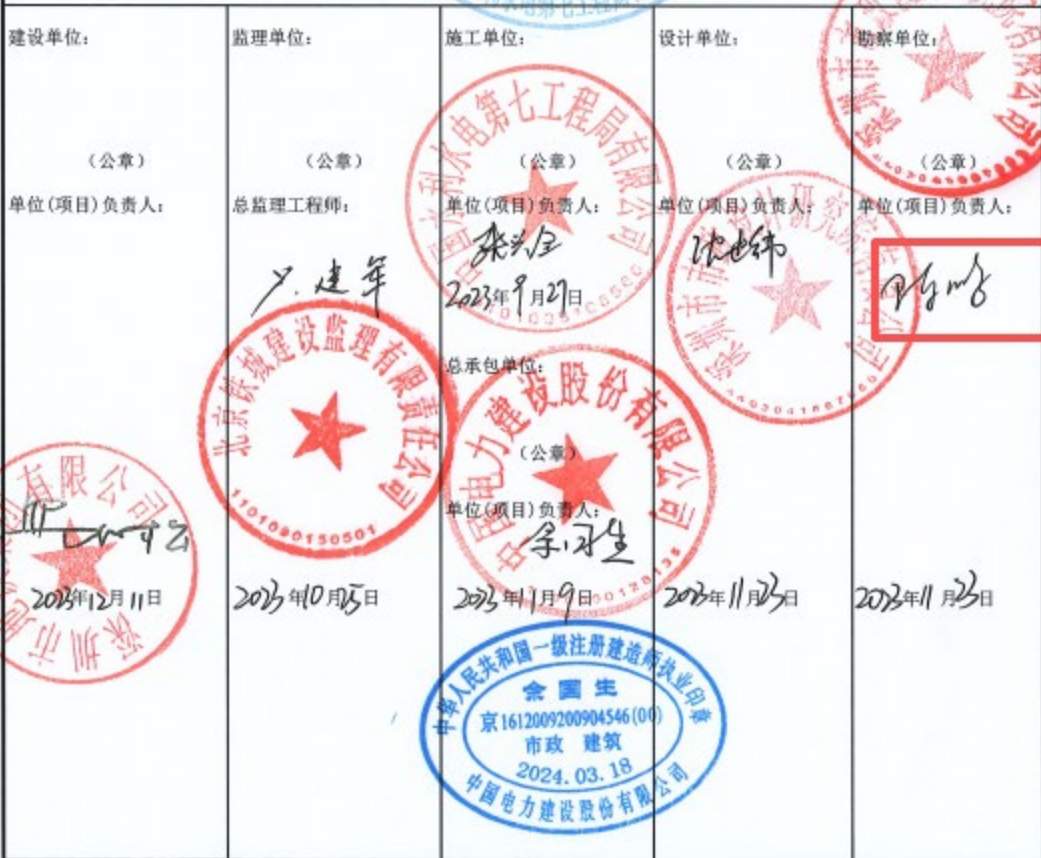 建设单位：
（公章）
单位(项目)负责人：
2023年12月11日
监理单位：
（公章）
总监理工程师：
建军
北京铁城建设监理有限责任公司
1101090150501
2023年10月25日
施工单位：
中国水利水电第七工程局有限公司
（公章）
单位(项目)负责人：
2023年9月27日
总承包单位：
中国电力建设股份有限公司
（公章）
单位(项目)负责人：
余国生
2023年11月9日
中华人民共和国一级注册建造师执业印章
余国生
京1612009200904546(00)
市政 建筑
2024.03.18
中国电力建设股份有限公司
设计单位：
（公章）
单位(项目)负责人：
沈世纬
2023年11月23日
勘察单位：
（公章）
单位(项目)负责人：
2023年11月23日